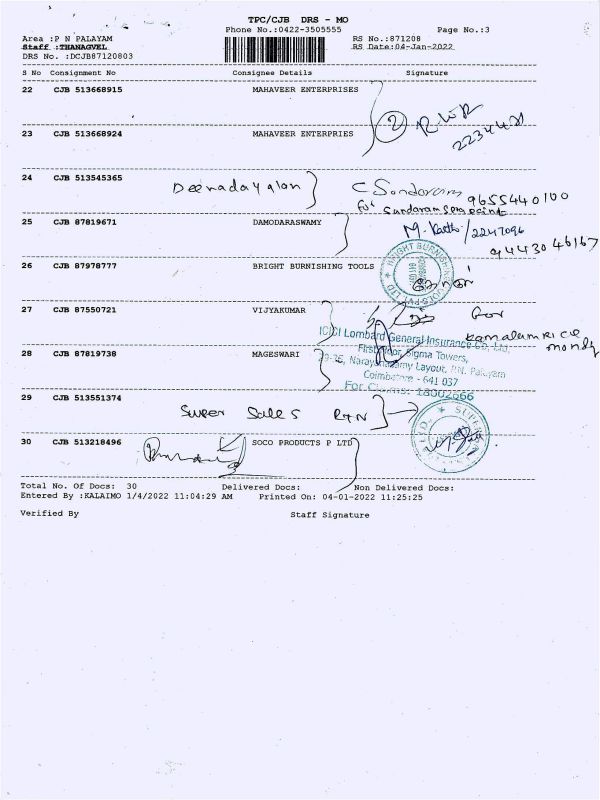 TPC/CJB DRS - MO
Phone No.:0422-3505555 Page No.:3
Area :P N PALAYAM RS No.:871208
Staff :THANAGVEL RS Date:04-Jan-2022
DRS No. :DCJB87120803
S No Consignment No Consignee Details Signature
22 CJB 513668915 MAHAVEER ENTERPRISES
2
223442
23 CJB 513668924 MAHAVEER ENTERPRIES
24 CJB 513545365 Deenadayalan C Sundaram 9655440100
for
25 CJB 87819671 DAMODARASWAMY /2247096
9443046167
26 CJB 87978777 BRIGHT BURNISHING TOOLS
27 CJB 87550721 VIJYAKUMAR for
ICICI Lombard General Insurance Co. Ltd,
First Floor, Sigma Towers,
28 CJB 87819738 MAGESWARI
Layout, P.N. Palayam
Coimbatore - 641 037
For Claims: 18002666
29 CJB 513551374
Super Sales
30 CJB 513218496 SOCO PRODUCTS P LTD
Total No. Of Docs: 30 Delivered Docs: Non Delivered Docs:
Entered By :KALAIMO 1/4/2022 11:04:29 AM Printed On: 04-01-2022 11:25:25
Verified By Staff Signature